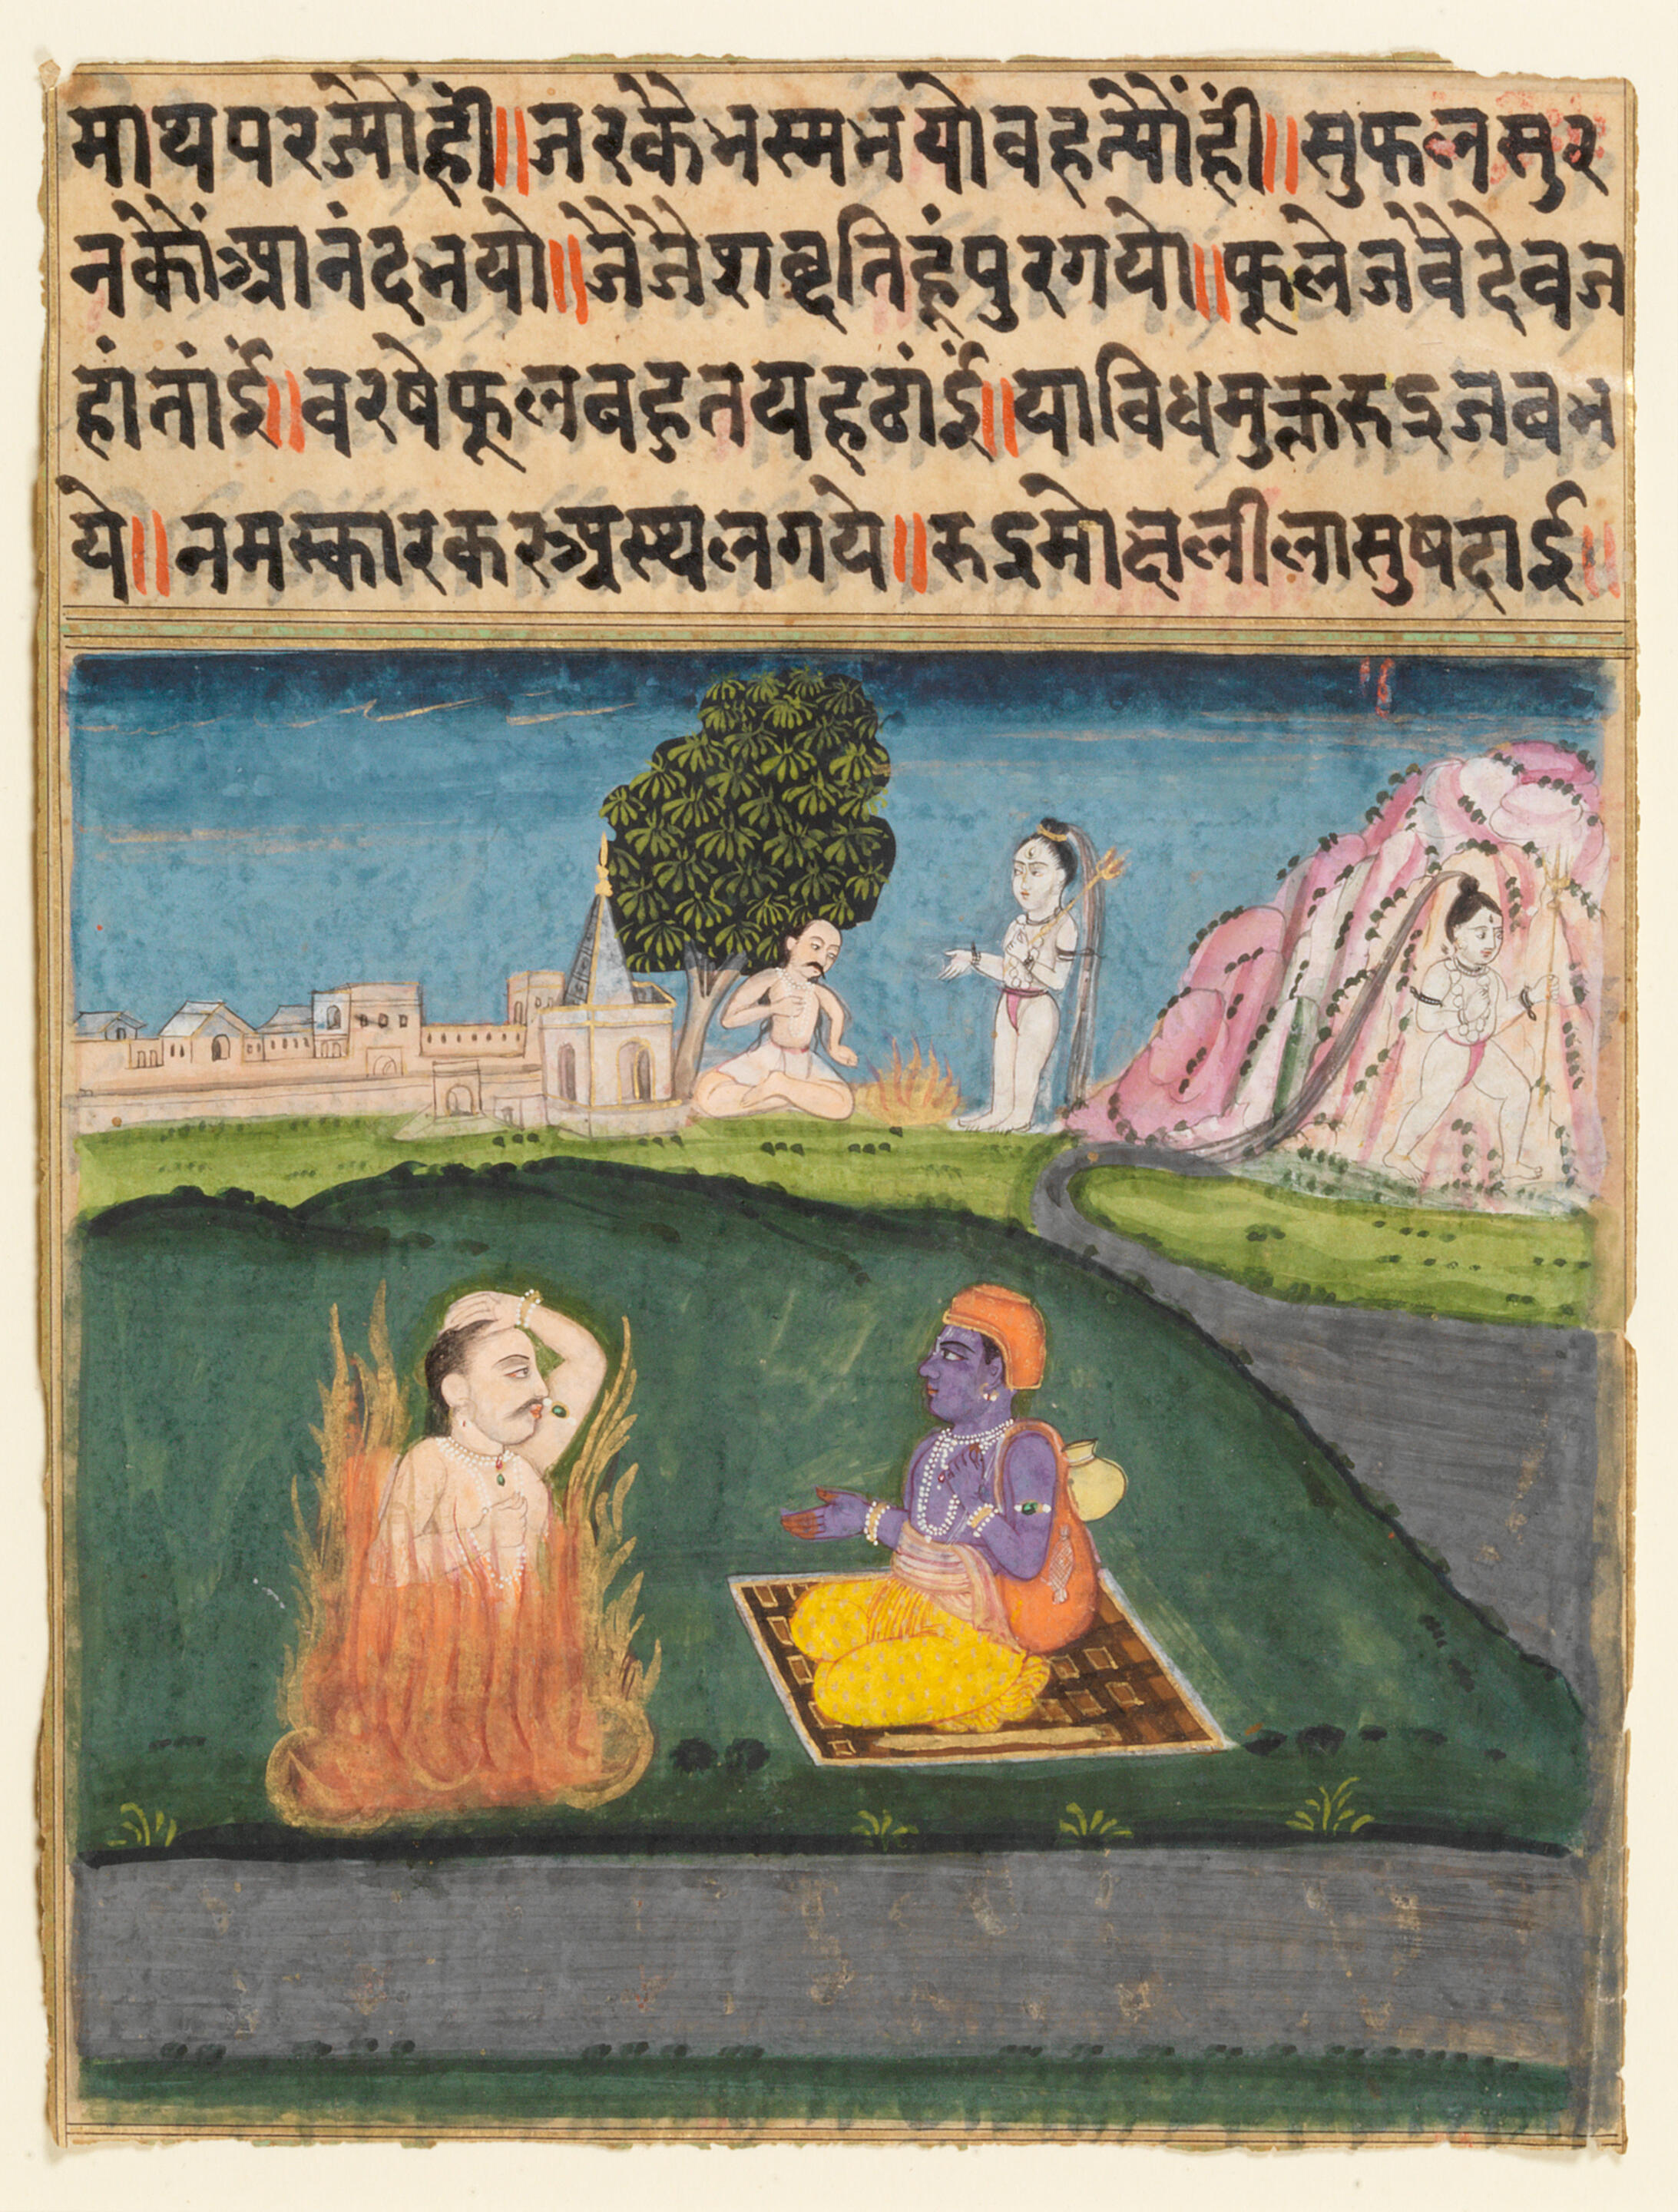 माथपरज्यौंहीं॥जरकेभस्मभयोवहत्यौंहीं॥सुफलसुर
नकौंआनंदभयो॥जैजैशब्दतिहूंपुरगयो॥फूलेजवैदेवज
हांतांई॥वरषेफूलबहुतयहठांई॥याविधमुक्तरुद्रजबभ
ये॥नमस्कारकरअस्थलगये॥रुद्रमोक्षलीलासुषदाई॥